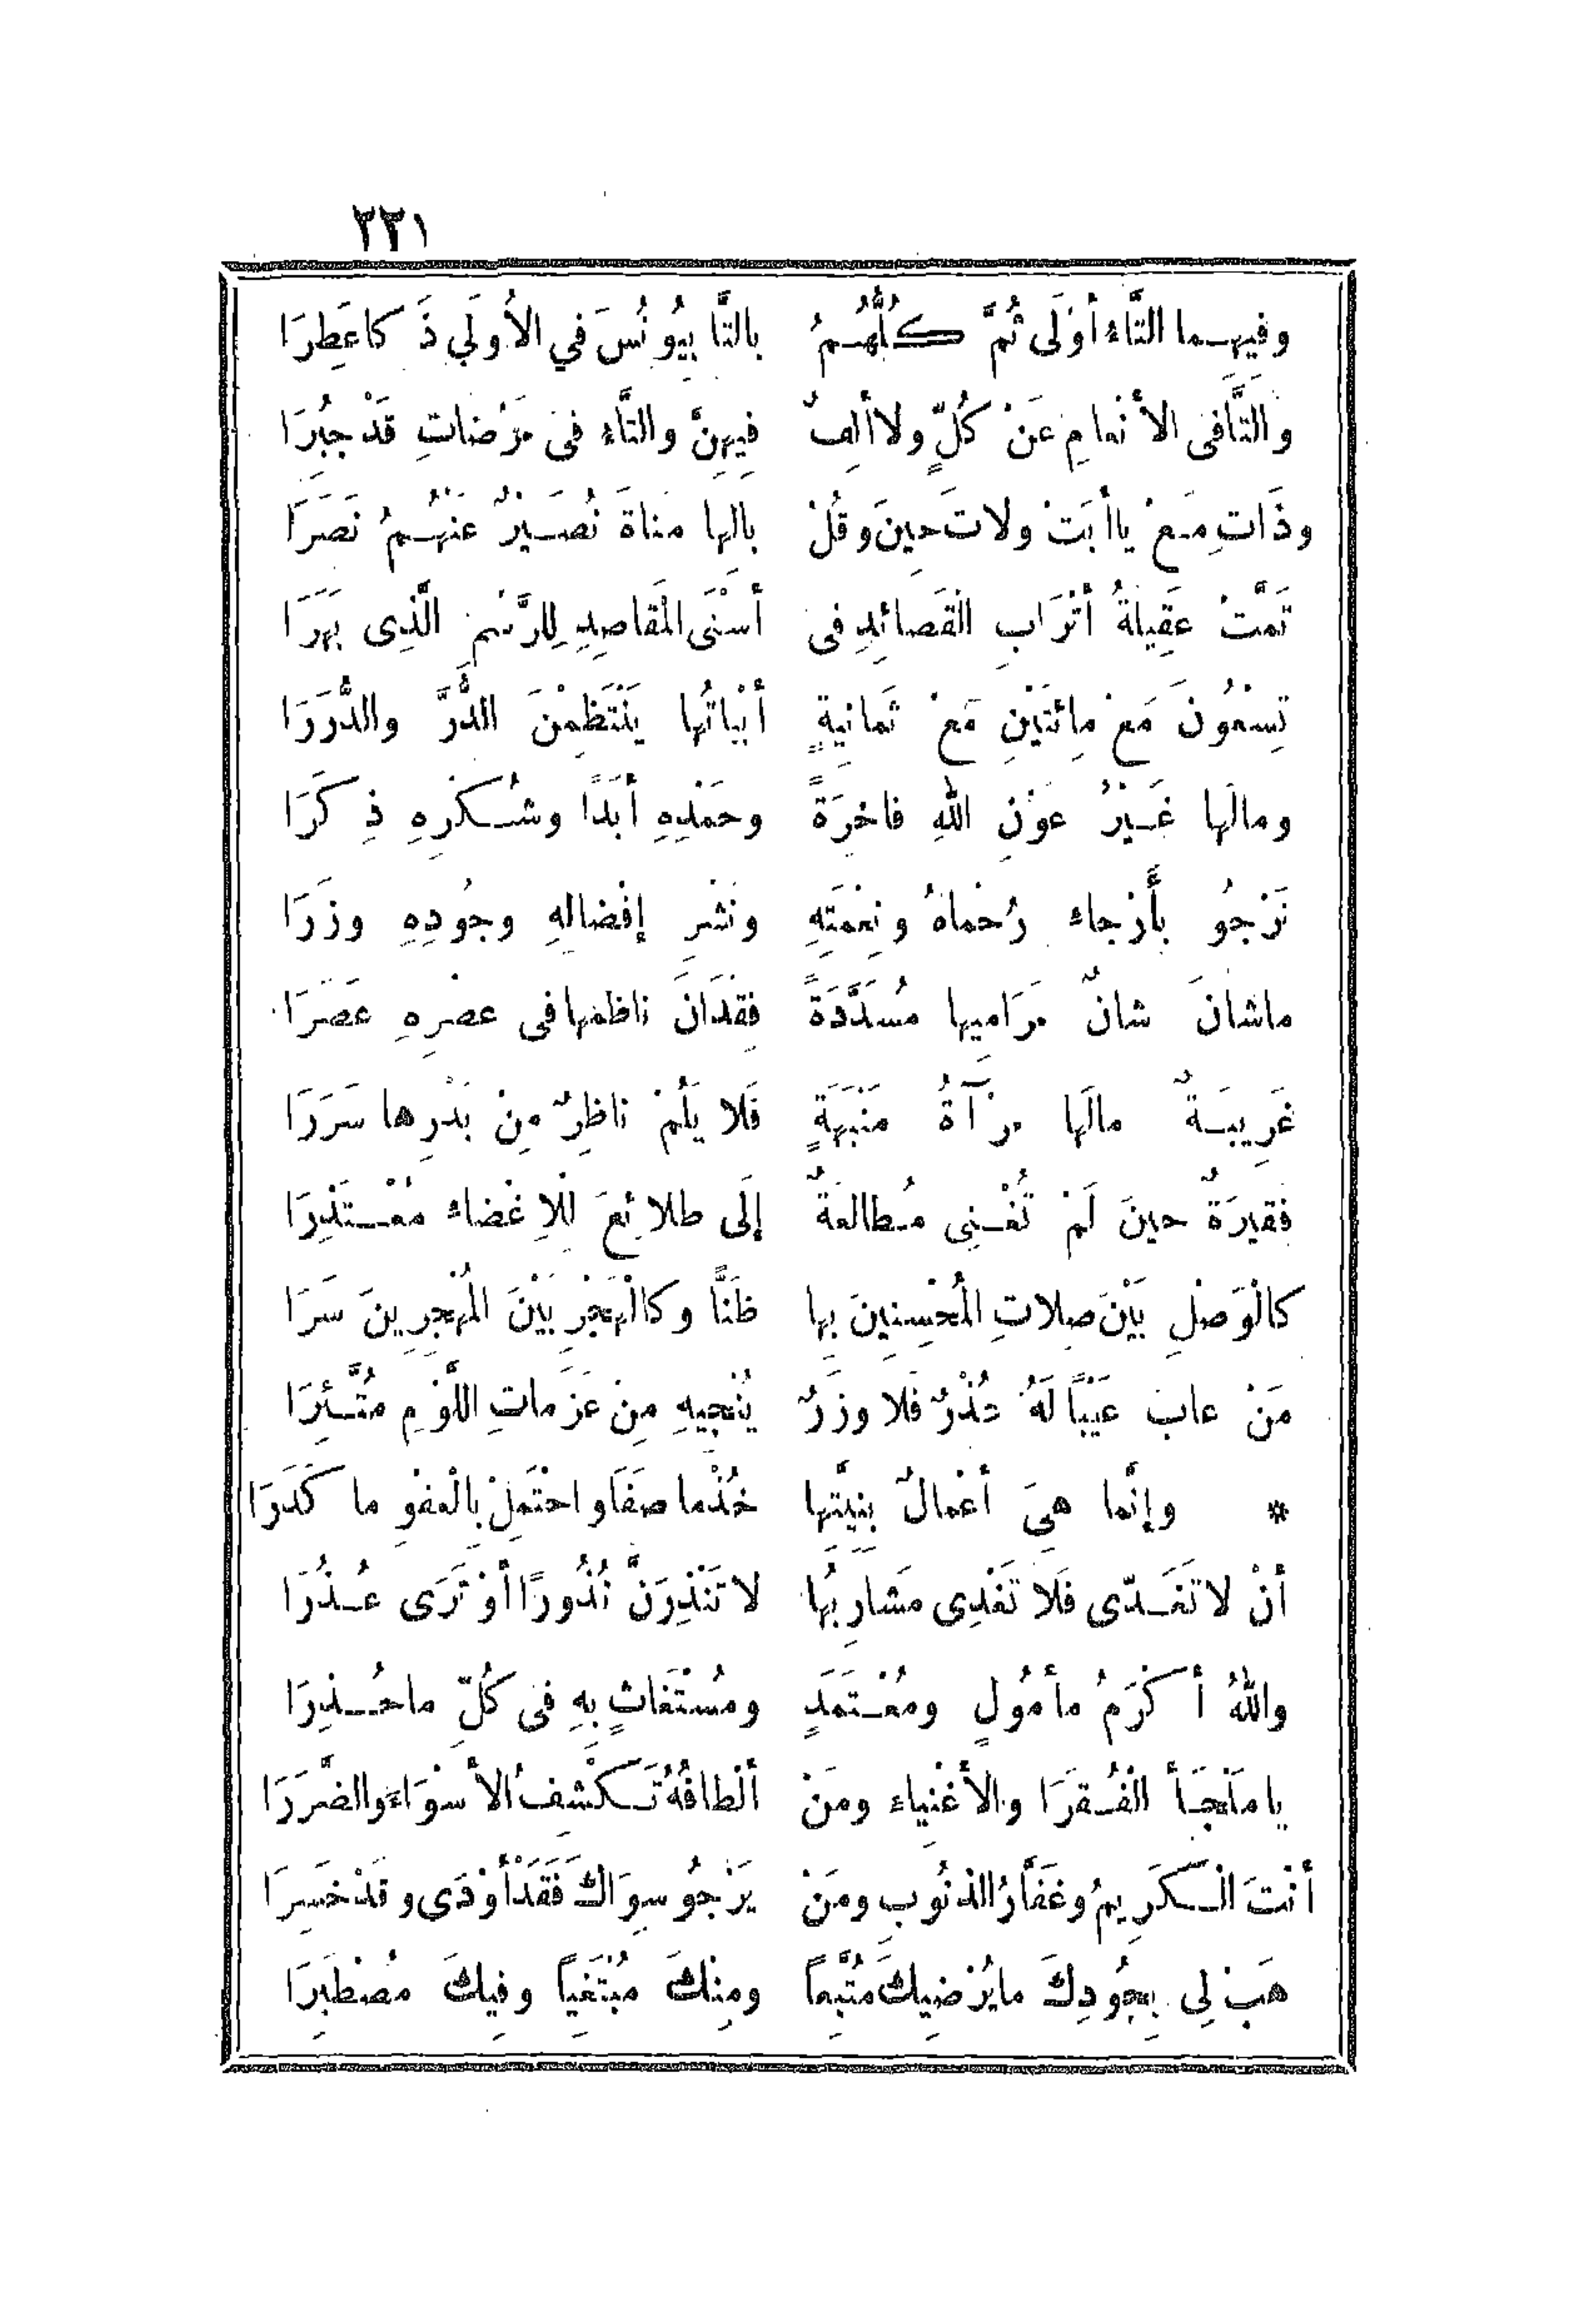 ٣٣١
وفِيهِـما التَّاء أوْلَى ثُمَّ كلُّهُـمُ بالتَّا بِيُونُسَ في الأُولَي ذَ كا عَطِرَا
والتَّا فى الأنْعامِ عَنْ كُلٍّ ولا أَلِفٌ فِيهِنَّ والتَّاءُ فى مَرْضاتِ قَدْ جُبِرَا
وذَاتِ مَـعْ يا أبَتْ ولاتَ حِينَ وقُلْ بالِها مناةَ نُصَـيْرٌ عنْهُـمُ نَصَرَا
تَمَّتْ عَقِيلةُ أتْرَابِ الْقَصائِدِ فى أسْنَى المَقاصِدِ لِلرَّسْمِ الَّذِى بَهَرَا
تِسْعُونَ مَعْ مِائَتَيْنِ مَعْ ثَمانِيةٍ أبْياتُها يَنْتَظِمْنَ الدُّرَّ والدُّرَرَا
ومالَها غَـيْرُ عَوْنِ اللهِ فاخِرَةً وحَمْدِهِ أبَدًا وشُـكْرِهِ ذِ كَرَا
نَرْجُو بأَرْجاء رُحْماهُ ونِعْمَتِهِ ونَشْرِ إفْضالِهِ وجُودِهِ وزَرَا
ماشانَ شانٌ مَرَامِيها مُسَدَّدَةً فِقْدَانَ ناظِمْها فى عصْرِهِ عَصَرَا
غَرِيبَـةٌ مالَها مِرْآةُ مَنْبَهَةٍ فَلا يَلُمْ ناظِرٌ مِنْ بَدْرِها سَرَرَا
فقِيرَةٌ حينَ لَمْ تُغْـنِى مُـطالعَةٌ إلَى طلائِعَ لِلْاِغْضاء مُعْـتَذِرَا
كالْوَصْلِ بَيْنَ صِلاتِ المُحْسِنِينَ بِها ظَنًّا وكالْهَجْرِ بَيْنَ المُهْجِرِينَ سَرَا
مَنْ عابَ عَيْبًا لَهُ عُذْرٌ فَلا وزَرٌ يُنْجِيهِ مِنْ عَزَماتِ اللَّوْمِ مُتَّـئِرَا
* وإنَّما هِىَ أعْمالٌ بِنِيَّتِها خُذْ ما صفَا واحْتَمِلْ بِالْعفْوِ ما كَدَرَا
أنْ لا تَقَـدّى فَلا تَقْدِى مَشارِبُها لا تَنْذِرَنَّ نُذُورًا أوْ تَرَى عُـذُرَا
واللهُ أ كْرَمُ مأمُولٍ ومُعْـتَمَدٍ ومُسْتَغاثٍ بِهِ فى كُلِّ ما حُـذِرَا
يا مَلْجَـأَ الْفُـقَرَا والأغْنِياء ومَنْ ألْطافُهُ تَـكْشِفُ الأسْوَاءَ والضَّرَرَا
أنْتَ الْـكَرِيمُ وغَفَّارُ الذنُوبِ ومَنْ يَرْجُو سِوَاكَ فَقَدْ أوْدَى وقَدْ خَسِرَا
هَبْ لِى بِجُودِكَ ما يُرْضِيكَ مُتَّبِعاً ومِنْكَ مُبْتَغِياً وفِيكَ مُصْطَبِرَا